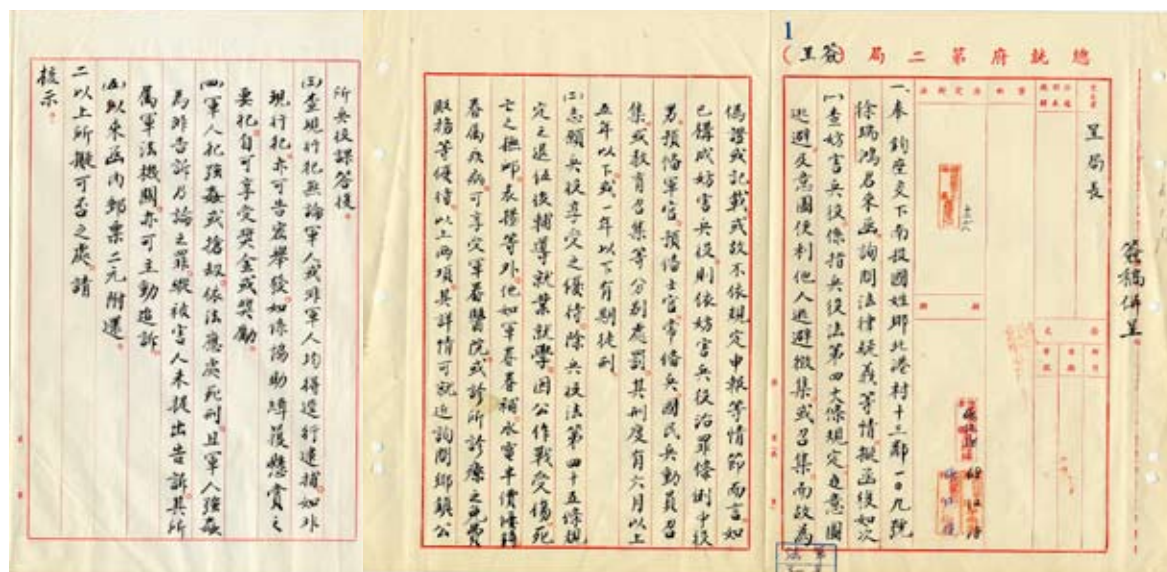 1
總統府第二局（簽呈）
簽稿併呈
呈局長
一、奉 鈞座交下南投國姓鄉北港村十三鄰一○九號
徐瑞鴻君來函詢問法律疑義等情擬函復如次
查妨害兵役係指兵役法第四六條規定意圖
逃避及意圖便利他人逃避徵集或召集而故為
偽證或記載或故不依規定申報等情節而言如
已構成妨害兵役則依妨害兵役治罪條例中役
男、預備軍官、預備士官、常備兵、國民兵動員召
集或教育召集等分別處罰其刑度有六月以上
五年以下或一年以下有期徒刑
(二)志願兵役享受之優待除兵役法第四十五條規
定之退伍後輔導就業就學因公作戰受傷死
亡之撫卹表揚等外他如軍眷眷補水電半價
眷屬疾病可享受軍眷醫院或診所診療之免費
等優待。以上兩項其詳情可就近詢問鄉鎮公
所兵役課答復。
(三)查現行犯無論軍人或非軍人均得逕行逮捕如非
現行犯亦可告密舉發。如係協助緝獲懸賞之
要犯自可享受獎金或獎勵。
(四)軍人犯強姦或搶劫依法應處死刑且軍人強姦
為非告訴乃論之罪縱被害人未提出告訴其所
屬軍法機關亦可主動追訴
(五)以來函內郵票二元附還。
二以上所擬可否之處請
核示。